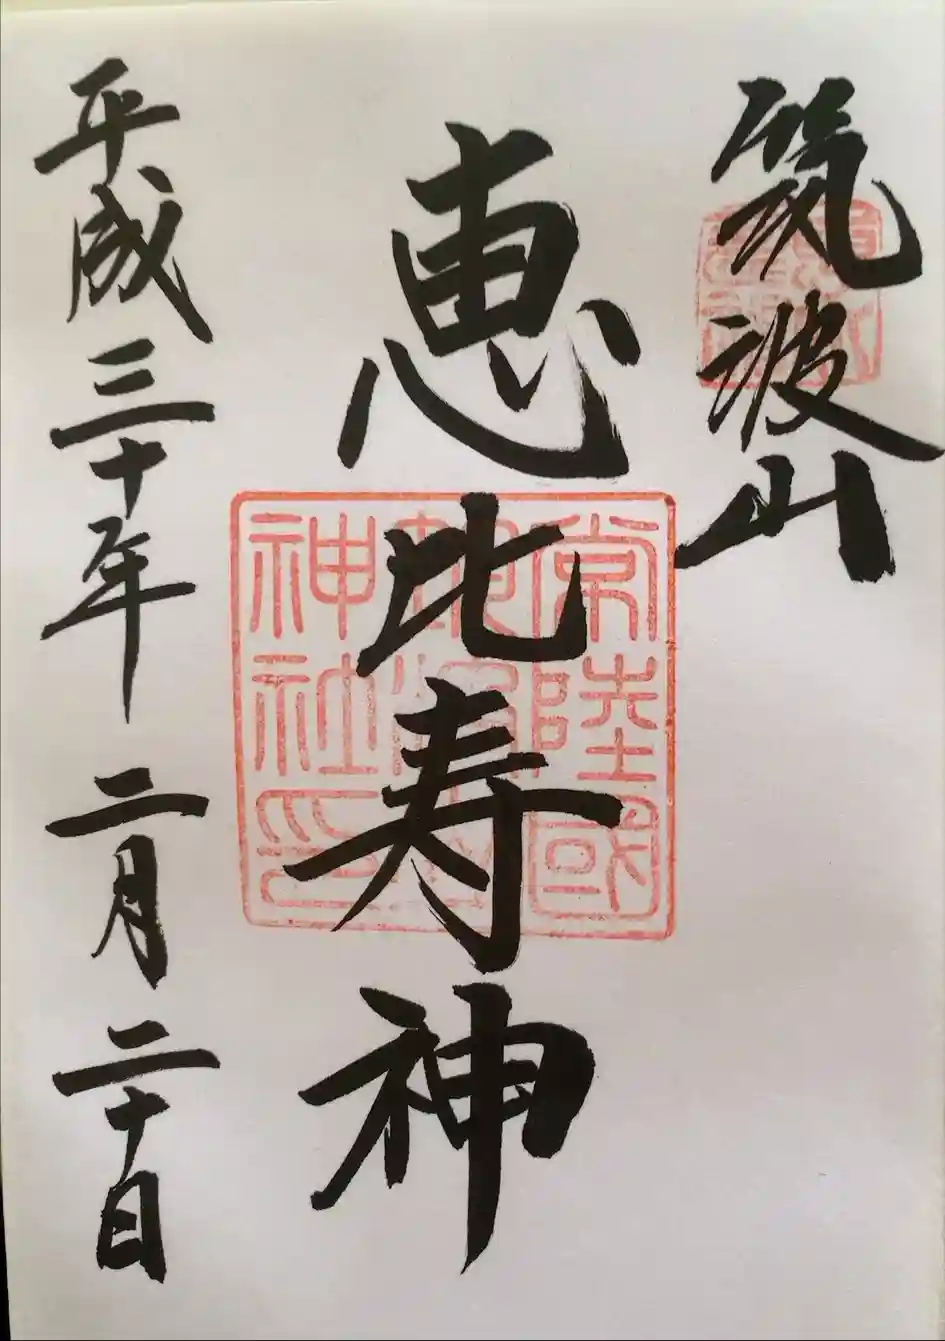 筑波山
恵比寿神
常陸國
神社印
平成三十年 二月二十日